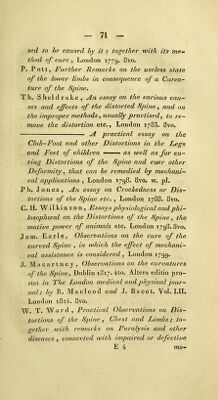 — 71 —
sed to be caused by it : together with its me-
thod of cure, London 1779. 8vo.
P. Pott, Farther Remarks on the useless state
of the lower limbs in consequence of a Curva-
ture of the Spine.
Th. Sheldrake, An essay on the various cau-
ses and effects of the distorted Spine, and on
the improper methods, usually practised, to re-
move the distortion etc., London 1783. 8vo.
——— A practical essay on the
Club-Foot and other Distortions in the Legs
and Feet of children —— as well as for cu-
ring Distortions of the Spine and ever other
Deformity, that can be remedied by mechani-
cal applications, London 1798. 8vo. m. pl.
Ph. Jones, An essay on Crookedness or Dis-
tortions of the Spine etc., London 1788. 8vo.
C. H. Wilkinson, Essays physiological and phi-
losophical on the Distortions of the Spine, the
motive power of animals etc. London 1798. 8vo.
Jam. Earle, Observations on the cure of the
curved Spine, in which the effect of mechani-
cal assistance is considered, London 1799.
J. Macartney, Observations on the curvatures
of the Spine, Dublin 1817. 4to. Altera editio pro-
stat in The London medical and physical jour-
nal; by R. Macleod and J. Bacot. Vol. LII.
London 1821. 8vo.
W. T. Ward, Practical Observations on Dis-
tortions of the Spine, Chest and Limbs; to-
gether with remarks on Paralysis and other
diseases, connected with impaired or defective
E 4 mo-